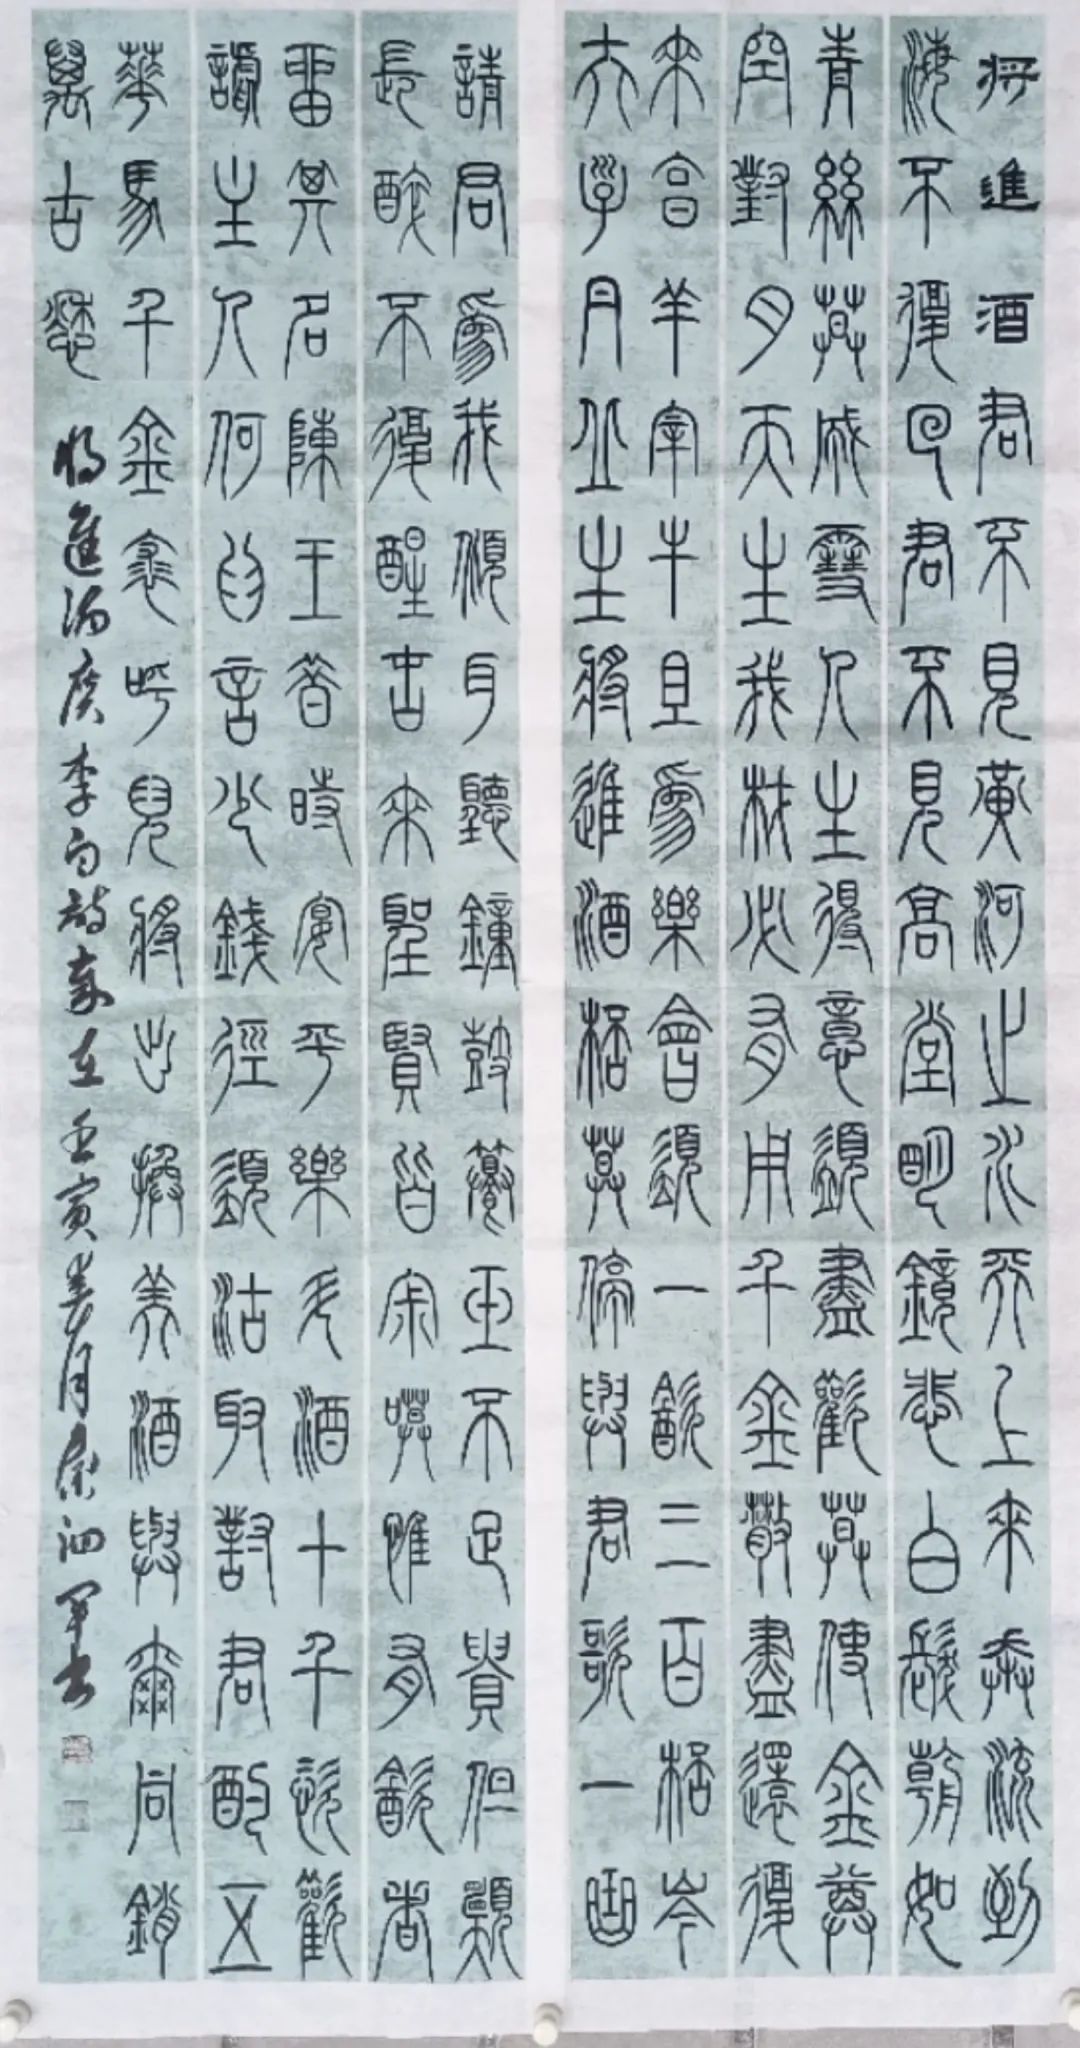 將進酒君不見黃河之水天上來奔流到
海不復回君不見高堂明鏡悲白髮朝如
青絲莫成雪人生得意須盡歡莫使金尊
空對月天生我材必有用千金散盡還復
來亯羊宰牛且為樂會須一飲三百桮岑
夫子丹丘生將進酒桮莫停與君歌一曲
請君為我傾耳聽鐘鼓饌玉不足貴但願
長醉不復醒古來聖賢皆寂嘆惟有飲者
留其名陳王昔時宴平樂斗酒十千恣歡
謔主人何為言少錢徑須沽取對君酌五
華馬千金裘呼兒將出換美酒與爾同銷
萬古愁
將進酒唐李白詩歲在壬寅春月泗軍書